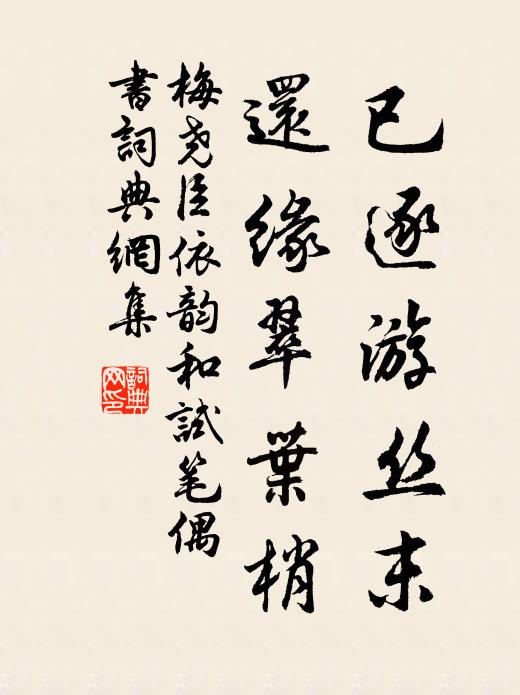 已逐游丝末
還緣翠葉梢
梅尧臣依韵和試笔偶
書詞典網集
詞典
网印